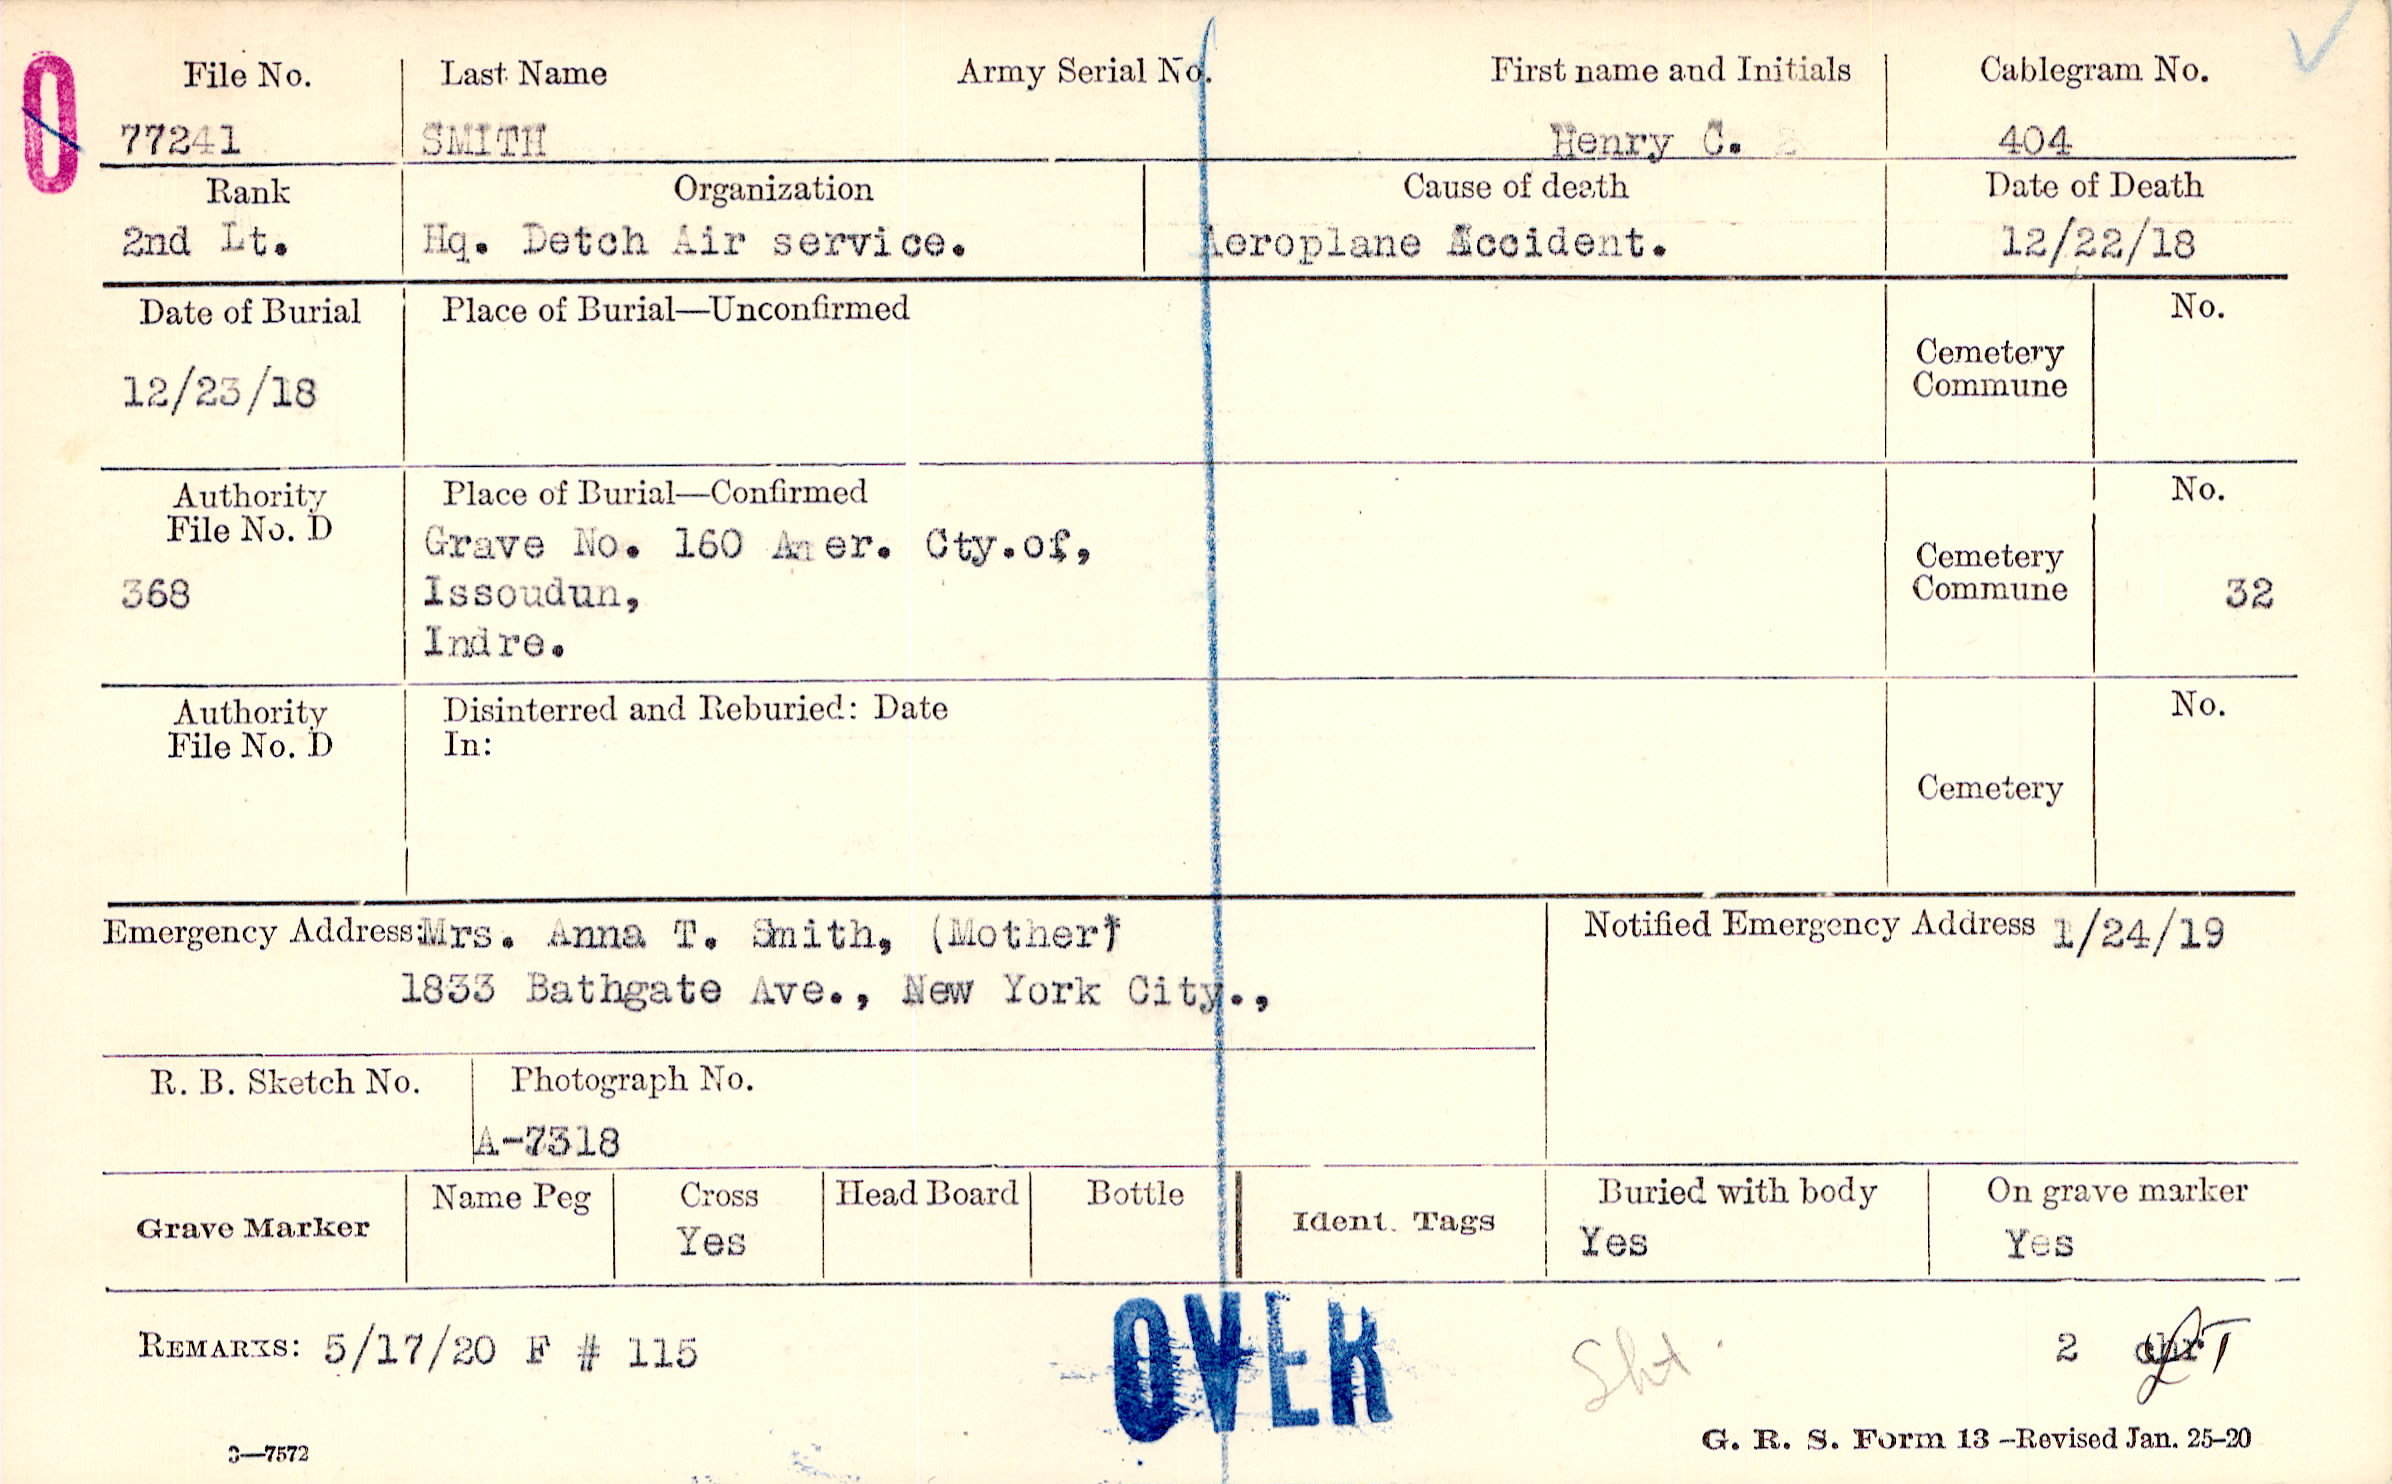 0
File No. Last Name Army Serial No. First name and Initials Cablegram No.
77241 SMITH Henry C. 404
Rank Organization Cause of death Date of Death
2nd Lt. Hq. Detch Air service. Aeroplane Accident. 12/22/18
Date of Burial Place of Burial—Unconfirmed No.
Cemetery
Commune
12/23/18
Authority Place of Burial—Confirmed No.
File No. D
Grave No. 160 Amer. Cty.of,
Cemetery
368 Issoudun, Commune 32
Indre.
Authority Disinterred and Reburied: Date No.
File No. D In:
Cemetery
Emergency Address: Mrs. Anna T. Smith, (Mother) Notified Emergency Address 1/24/19
1833 Bathgate Ave., New York City.,
R. B. Sketch No. Photograph No.
A-7318
Grave Marker Name Peg Cross Head Board Bottle Ident. Tags Buried with body On grave marker
Yes Yes Yes
REMARKS: 5/17/20 F # 115 OVER Sht 2
3—7572 G. R. S. Form 13 -Revised Jan. 25-20